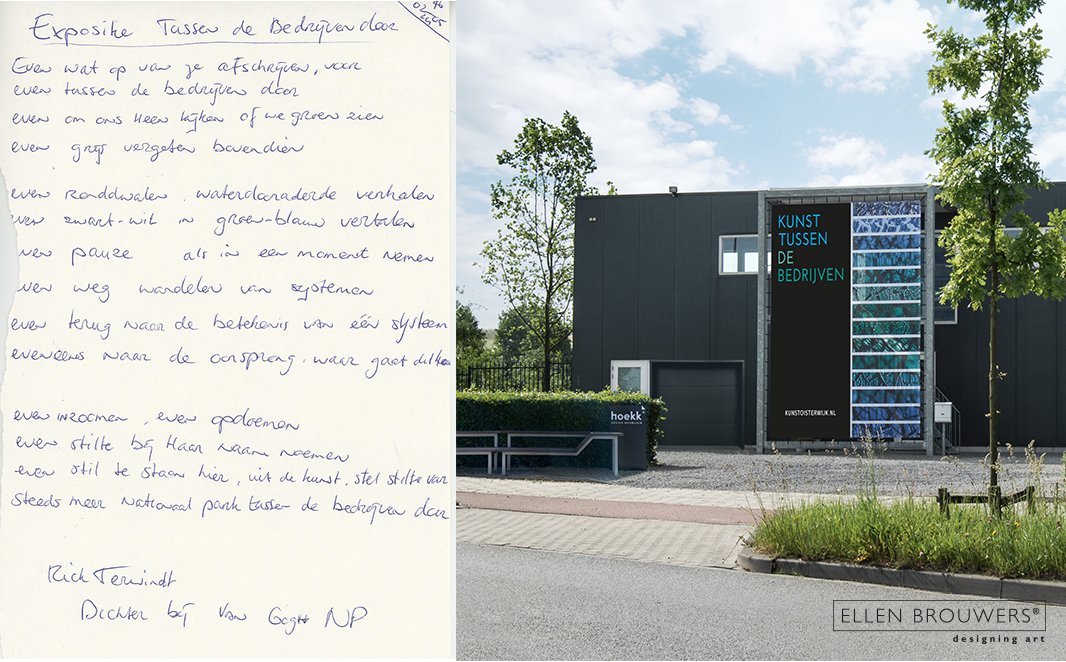 Expositie Tussen de Bedrijven door
Even wat op van je afschrijven, voor
even tussen de bedrijven door
even om ons heen kijken of we groen zien
even grijs vergeten bovendien
even ronddwalen, waterdooraderde verhalen
even zwart-wit in groen-blauw vertalen
even pauze als in een moment nemen
even weg wandelen van systemen
even terug naar de betekenis van één systeem
eveneens naar de oorsprong, waar gaat dit
even inzoomen, even opdoemen
even stilte bij Haar naam noemen
even stil te staan hier, uit de kunst, stel stilte voor
steeds meer Nationaal park tussen de bedrijven door
Rick Terwindt
Dichter bij Van Gogh NP
KUNST
TUSSEN
DE
BEDRIJVEN
KUNSTOISTERWIJK.NL
hoekk
ELLEN BROUWERS®
designing art